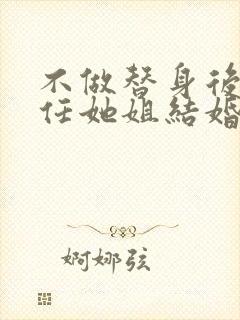 不做替身後
任她姐結婚
婀娜弦